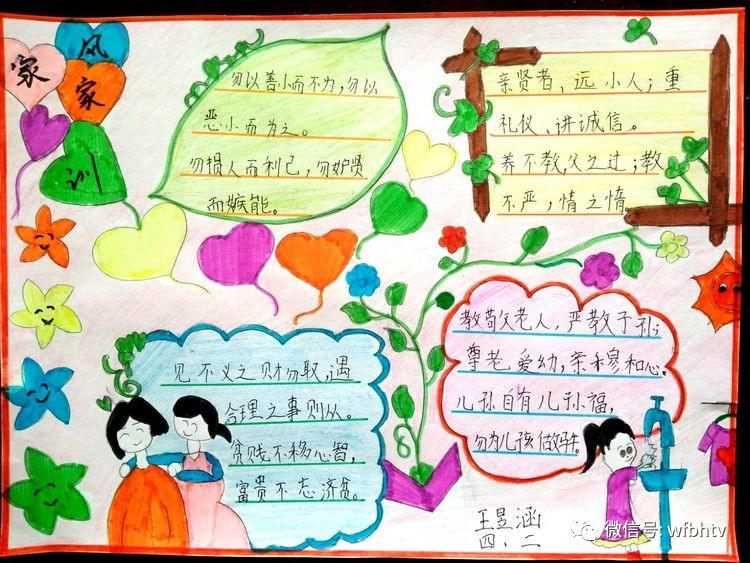 家风家训
勿以善小而不为，勿以
恶小而为之。
勿损人而利己，勿妒贤
而嫉能。
亲贤者、远小人；重
礼仪、讲诚信。
养不教，父之过；教
不严，情之惰。
教敬老人，严教子孙；
尊老爱幼，亲穆和心。
儿孙自有儿孙福，
勿为儿孩做
见不义之财勿取，遇
合理之事则从。
贫贱不移心智，
富贵不忘济贫。
王昱涵
四、二
微信号: wfbhtv